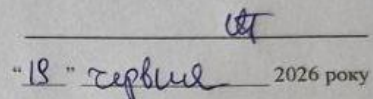 "18" червня 2026 року